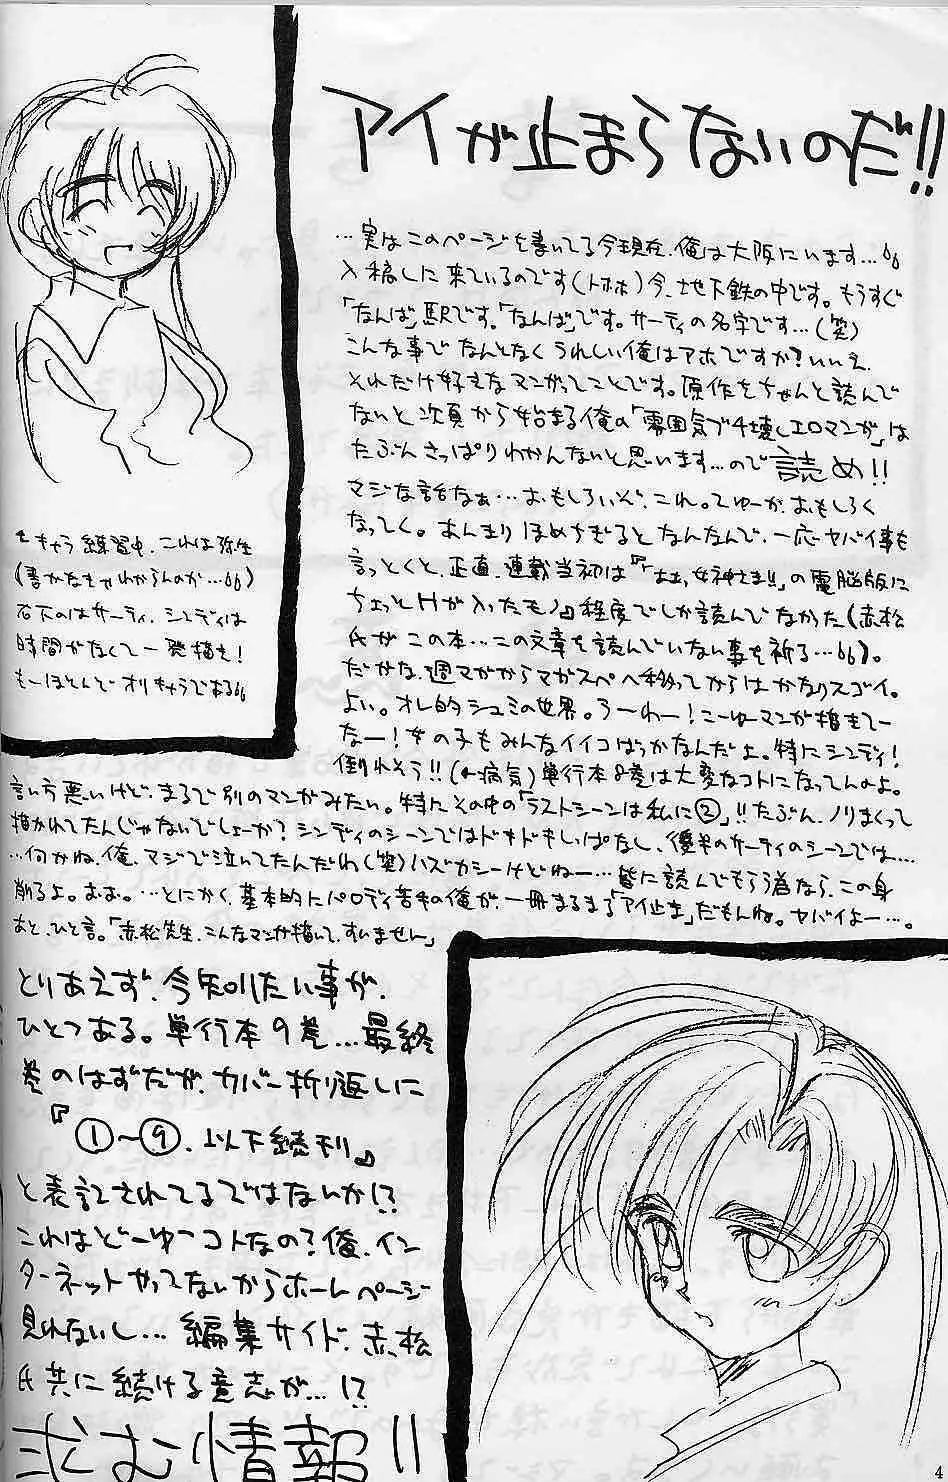 アイが止まらないのだ!!
…実はこのページを書いてる今現在、俺は大阪にいます…
入稿しに来ているのです(トホホ)今、地下鉄の中です。もうすぐ
「なんば」駅です。「なんば」です。サーティの名字です…(笑)
こんな事でなんとなくうれしい俺はアホですか?いいえ、
それだけ好きなマンガってことです。原作をちゃんと読んで
ないと次頁から始まる俺の「雰囲気ブチ壊しエロマンガ」は
たぶんさっぱりわかんないと思います…ので読め!!
マジな話なぁ…おもしろいぞ、これ。てゆーか、おもしろく
なってく。あんまりほめちぎるとなんなんで、一応ヤバイ事も
言っとくと、正直、連載当初は『ああっ女神さまっ!!』の電脳版に
ちょっとHが入ったモノ』程度でしか読んでなかった(赤松
氏がこの本…この文章を読んでいない事を祈る…)。
だがな、週マガからマガスペへ移ってからはかなりスゴイ。
よい。オレ的シュミの世界。うーわー!こーゆーマンガ描きてー
なー!女の子もみんなイイコばっかなんだよ。特にシンディ!
倒れそう!!(←病気)単行本8巻は大変なコトになってんのよ。
言い方悪いけど、まるで別のマンガみたい。特にその中の「ラストシーンは私に②」!!たぶん、ノリまくって
描かれてたんじゃないでしょーか?シンディのシーンではドキドキしっぱなし、後半のサーティのシーンでは…
…何かね、俺、マジで泣いてたんだわ(笑)ハズカシーけどねー…皆に読んでもらう為なら、この身
削るよ。おお。…とにかく、基本的にパロディ苦手の俺が、一冊まるまる「アイ止ま」だもんね。ヤバイよー…。
あと、ひと言。「赤松先生、こんなマンガ描いて、すいません」
←キャラ練習中、これは弥生
(書かなきゃわからんのか…)
右下のはサーティ、シンディは
時間がなくて一発描き!
もーほとんどオリキャラである
とりあえず、今知りたい事が、
ひとつある。単行本9巻…最終
巻のはずだが、カバー折り返しに
『①〜⑨、以下続刊』
と表記されてるではないか!?
これはどーゆーコトなの?俺、イン
ターネットやってないからホームページ
見れないし…編集サイド、赤松
氏共に続ける意志が…!?
求む情報!!
4